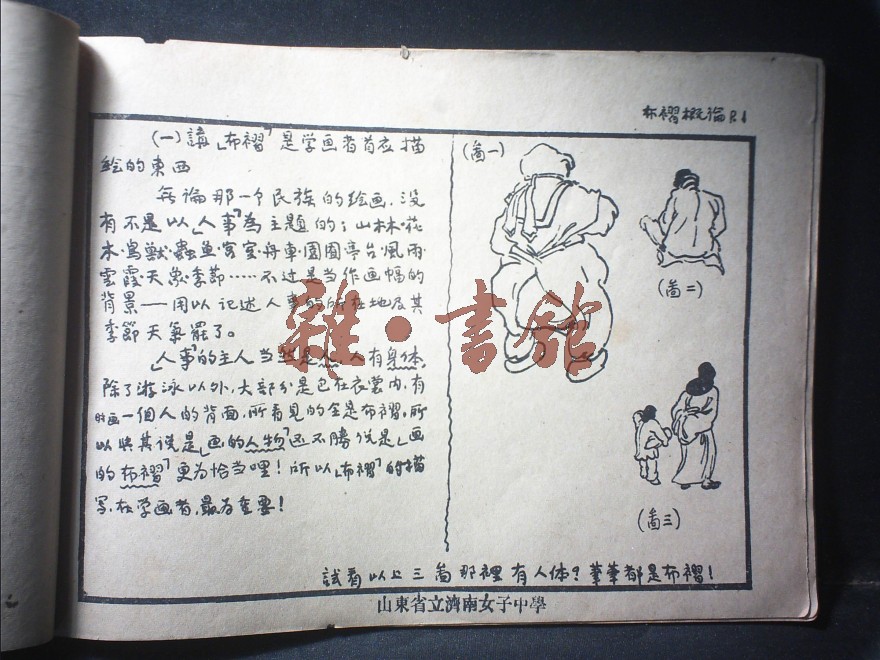 布褶概論 P.1
(一)講「布褶」是学画者首应描
绘的東西
無論那一个民族的绘画,没
有不是以「人事」為主題的;山林·花
木·鳥獣·蟲鱼·宮室·舟車·園囿亭台·風雨·
雲霞天象季節……不过是当作画幅的
背景——用以记述人事的所在地及其
季節天氣罷了。
「人事」的主人当然是人,人有身体,
除了游泳以外,大部分是包在衣裳内,有
时画一個人的背面,所看見的全是布褶,所
以與其说是「画的人物」还不勝说是「画
的布褶」更为恰当哩!所以「布褶」的描
写,在学画者,最为重要!
(畵一)
(畵二)
(畵三)
試看以上三畵那裡有人体?筆筆都是布褶!
山東省立濟南女子中學
雜·書館